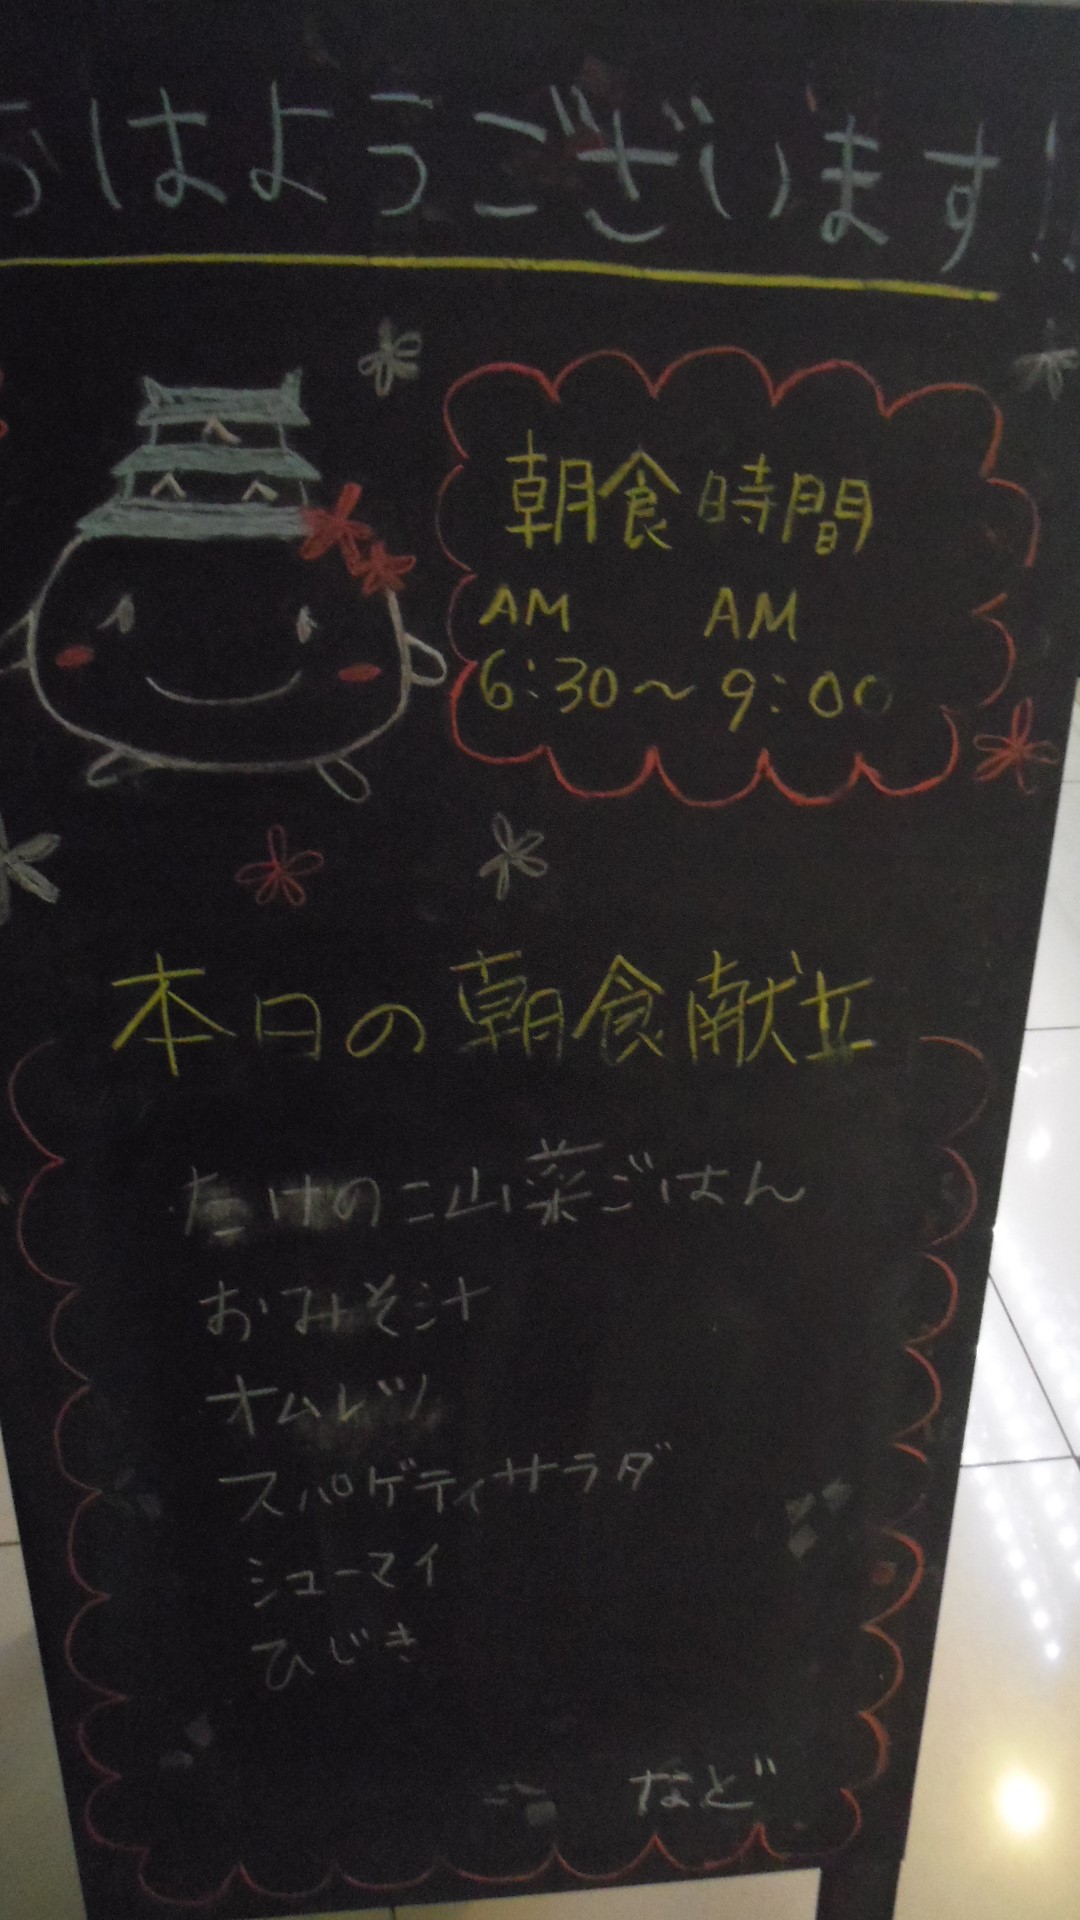 おはようございます!!
朝食時間
AM AM
6:30～9:00
本日の朝食献立
たけのこ山菜ごはん
おみそ汁
オムレツ
スパゲティサラダ
シューマイ
ひじき
など